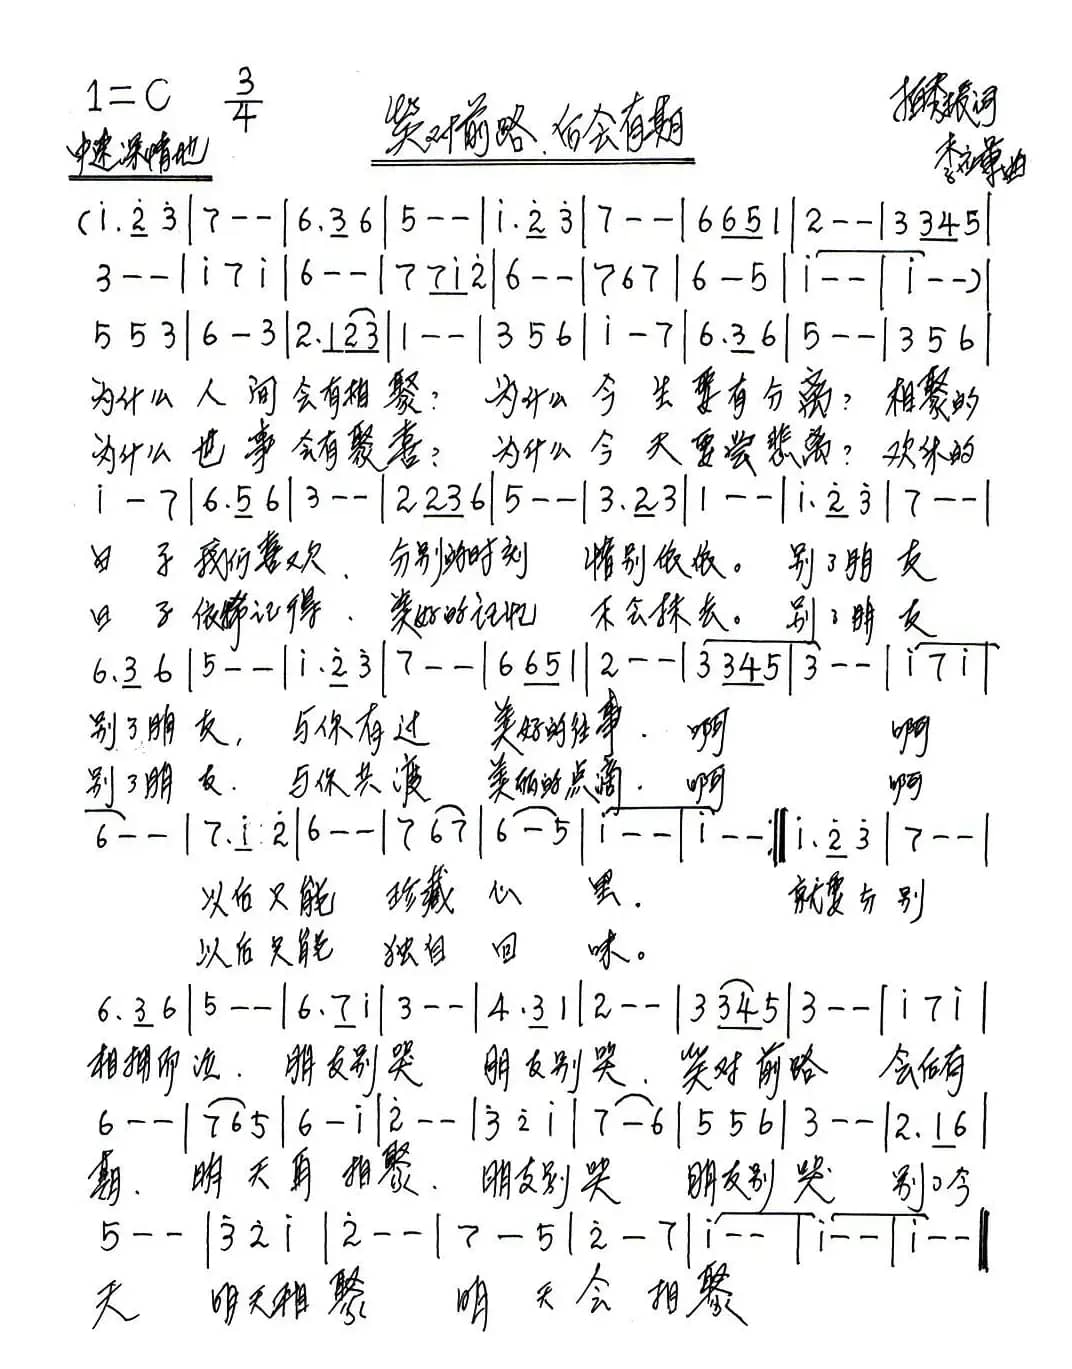 1=C 3/4 笑对前路、后会有期 词
中速深情地 曲
(i.2̇ 3̇|7--|6.3 6|5--|i.2̇ 3̇|7--|6 6 5 1|2--|3 3 4 5|
3--|i 7 i|6--|7 7 i 2̇|6--|7 6 7|6-5|i--|i--)|
5 5 3|6-3|2.1 2 3|1--|3 5 6|i-7|6.3 6|5--|3 5 6|
为什么人间会有相聚? 为什么今生要有分离? 相聚的
为什么世事会有聚喜? 为什么今天要尝悲离? 欢乐的
i-7|6.5 6|3--|2 2 3 6|5--|3.2 3|1--|i.2̇ 3̇|7--|
日子我们喜欢、分别的时刻 惜别依依。别了朋友
日子依稀记得、美好的记忆 不会抹去。别了朋友
6.3 6|5--|i.2̇ 3̇|7--|6 6 5 1|2--|3 3 4 5|3--|i 7 i|
别了朋友, 与你有过 美好的往事. 啊 啊
别了朋友. 与你共渡 美丽的点滴. 啊 啊
6--|7.i 2̇|6--|7 6 7|6-5|i--|i--:‖i.2̇ 3̇|7--|
以后只能 珍藏心里. 就要分别
以后只能 独自回味。
6.3 6|5--|6.7 i|3--|4.3 1|2--|3 3 4 5|3--|i 7 i|
相拥而泣. 朋友别哭 朋友别哭、笑对前路 会后有
6--|7 6 5|6-i|2̇--|3̇ 2̇ i|7-6|5 5 6|3--|2.1 6|
期. 明天再相聚. 朋友别哭 朋友别哭 别了今
5--|3̇ 2̇ i|2̇--|7-5|2̇-7|i--|i--|i--‖
天 明天相聚 明天会相聚